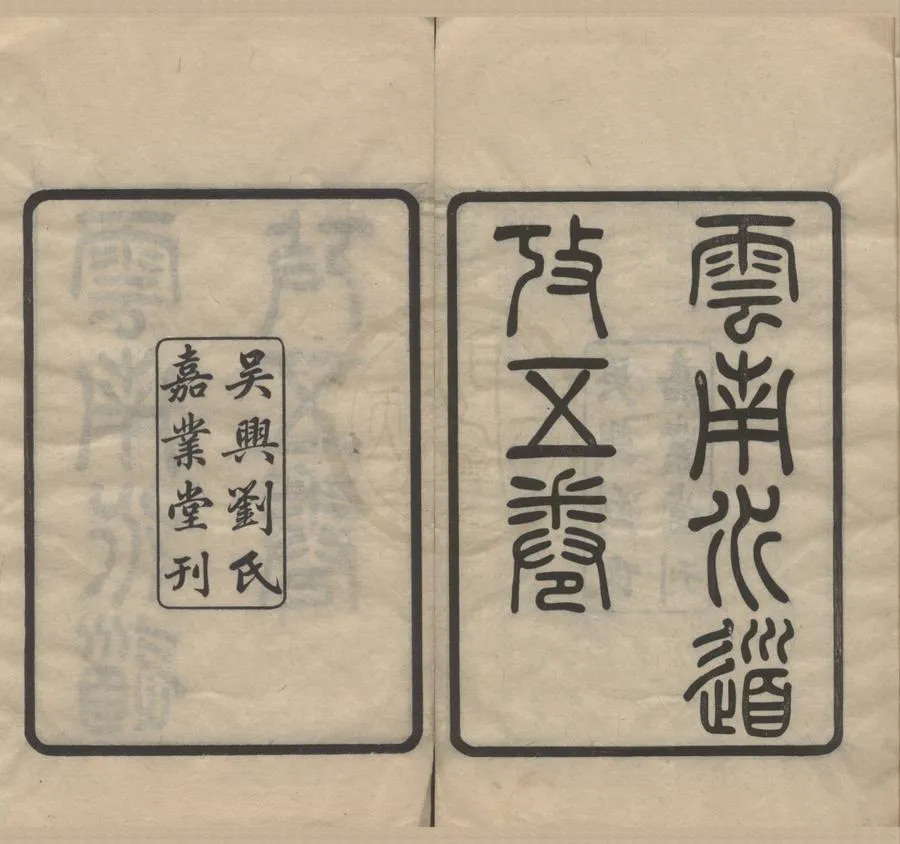 雲南水道
攷五卷
吴興劉氏
嘉業堂刊